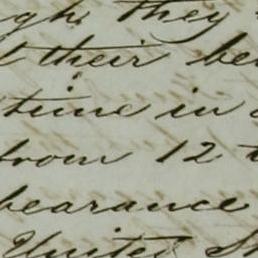 they
their be
time in
from 12 t
bearance
United St